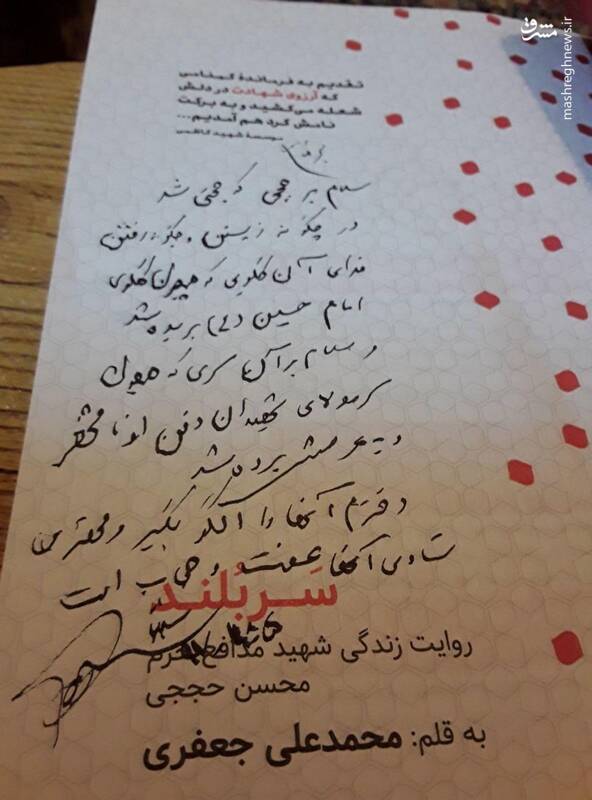 مشرق
mashreghnews.ir
تقدیم به فرماندهٔ گمنامی
که آرزوی شهادت در دلش
شعله می‌کشید و به برکت
نامش گرد هم آمدیم...
موسسهٔ شهید کاظمی
سلام بر حججی که حجتی شد
در چگونه زیستن و چگونه رفتن
فدای آن گلویی که همچون گلوی
امام حسین (ع) بریده شد
و سلام بر آن سری که همچون
سر مولای شهیدان دفن او نا
برده شد
دخترم آنها را الگو بگیر و مهمترین
شادی آنها عفت و حجاب است
سربلند
روایت زندگی شهید مدافع حرم
محسن حججی
به قلم: محمدعلی جعفری